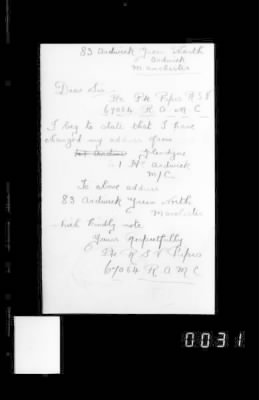 83 Ardwick Green North
Ardwick
Manchester
Dear Sir
Re Pte Piper R S V
67064 R A M C
I beg to state that I have
changed my address from
1 Ardwick
M/C
To above address
83 Ardwick Green North
Manchester
which kindly note
Yours Respectfully
Pte R S V Piper
67064 R A M C
0031